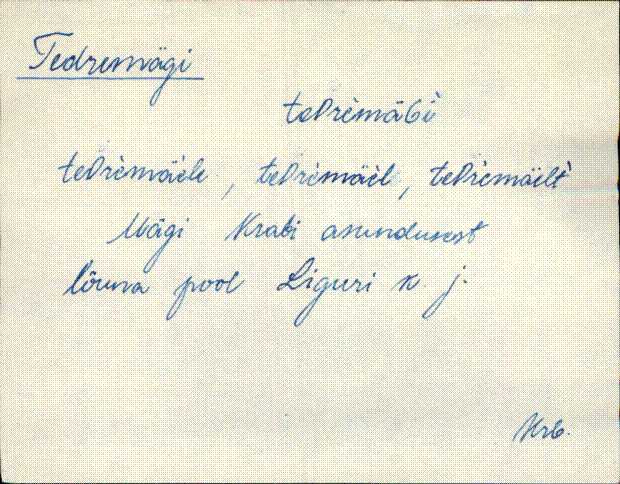 Tedremägi
teDrimäGi
teDrimäele, teDrimäel, teDrimäelt
Mägi Krabi asundusest
lõuna pool Liguri k. j.
Krb.